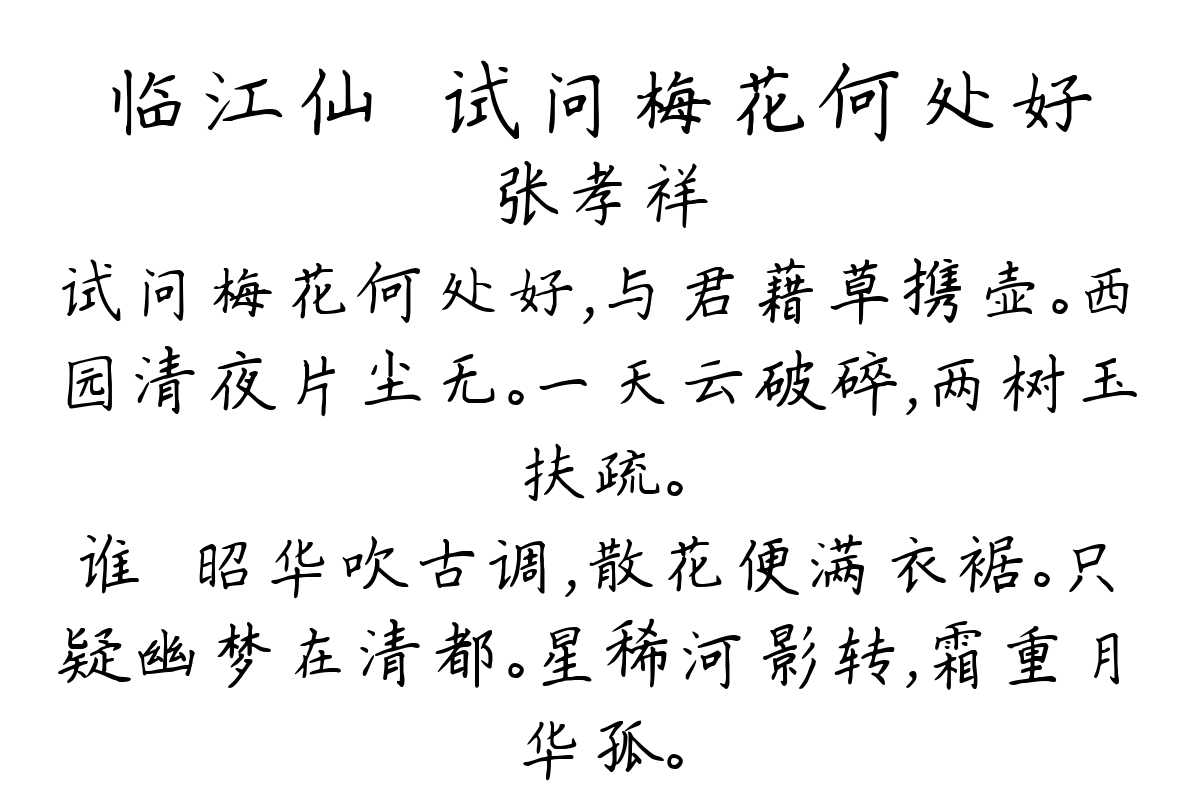 临江仙 试问梅花何处好
张孝祥
试问梅花何处好,与君藉草携壶。西
园清夜片尘无。一天云破碎,两树玉
扶疏。
谁 昭华吹古调,散花便满衣裾。只
疑幽梦在清都。星稀河影转,霜重月
华孤。